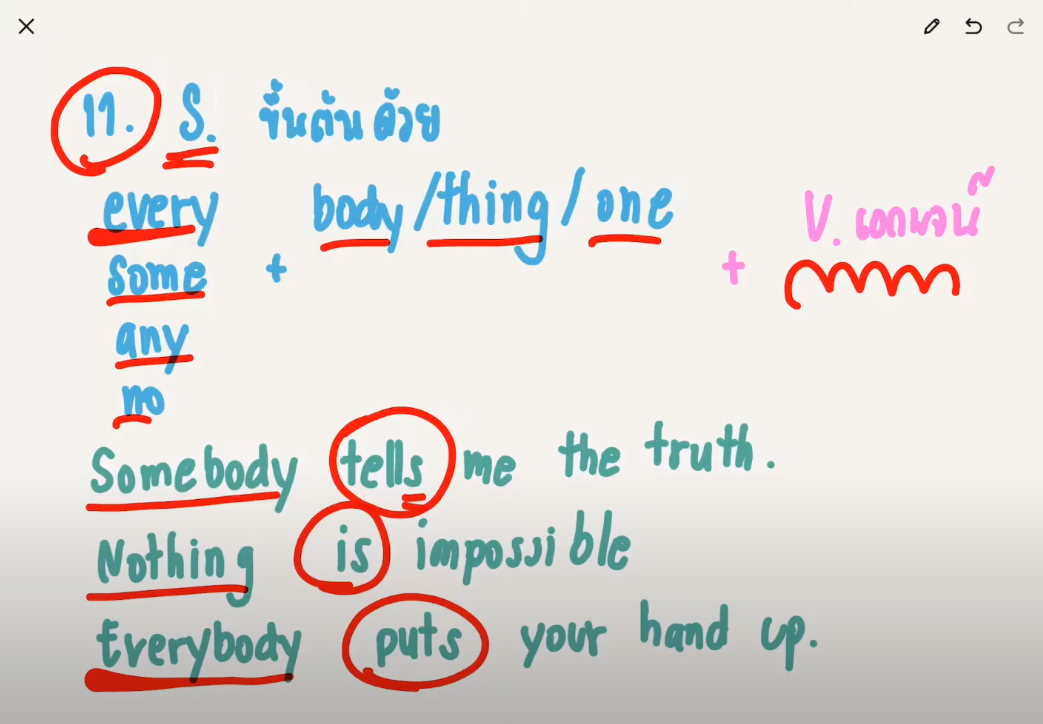 11. S. ขึ้นต้นด้วย
every + body/thing/one + V. เอกพจน์
some
any
no
Somebody tells me the truth.
Nothing is impossible
Everybody puts your hand up.